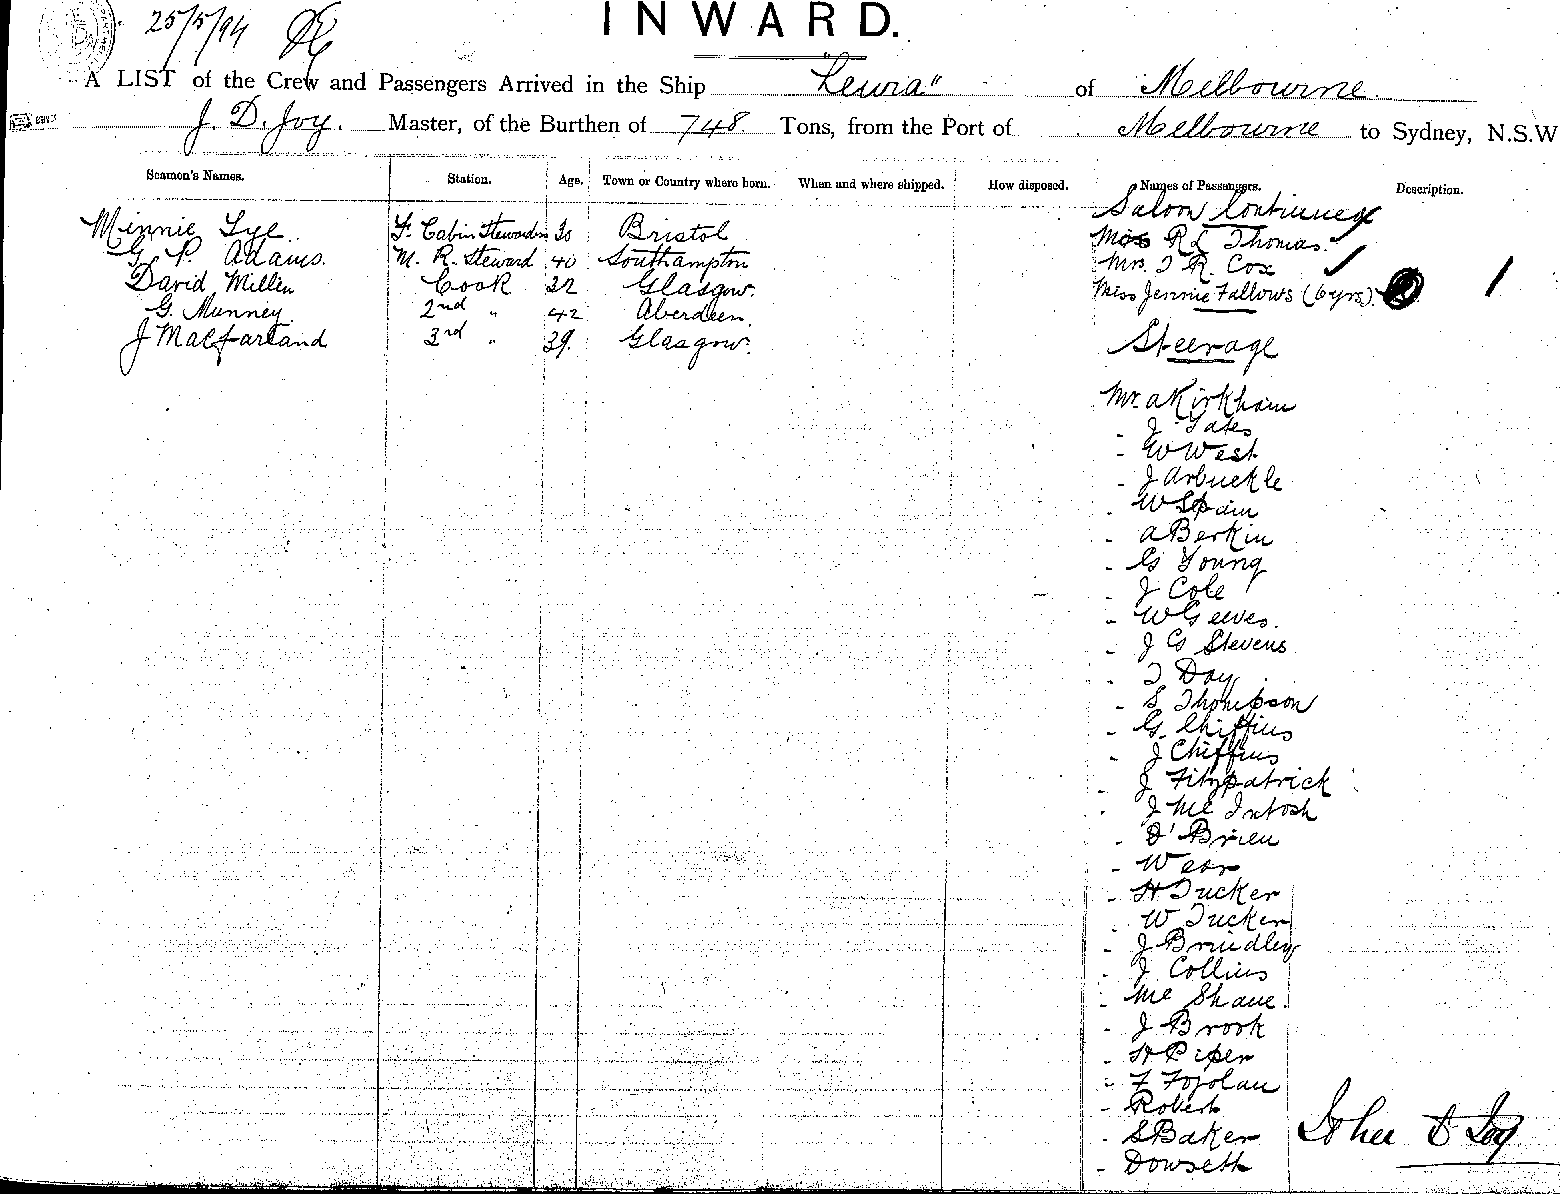 25/5/94
INWARD.
A LIST of the Crew and Passengers Arrived in the Ship "Lewra" of Melbourne.
J. D. Joy. Master, of the Burthen of 748 Tons, from the Port of Melbourne to Sydney, N.S.W
Seamen's Names. Station. Age. Town or Country where born. When and where shipped. How disposed. Names of Passengers. Description.
Saloon Continued
Minnie Lye F. Cabin Stewardess 30 Bristol
G. P. Adams. M. R. Steward 40 Southampton
David Millen Cook 32 Glasgow.
G. Munney. 2nd " 42 Aberdeen.
J Macfarland 3rd " 39. Glasgow.
Miss R L Thomas.
Mrs. T R. Cox
Miss Jennie Fallows (6yrs) 1
Steerage
Mr. A Kirkham
- J Yates
- W West
- J Arbuckle
- W Spain
- A Berkin
- G Young
- J Cole
- W Geeves.
- J G Stevens
- T Day
- S Thompson
- G. Chiffins
- J Chiffins
- J Fitzpatrick
- J McIntosh
- O'Brien
- Wear
- H Tucker
- W Tucker
- J Brindley
- J Collins
- McShane.
- J Brook
- H Piper
- F
- Robert
- S Baker
- Dowseth
John D Joy